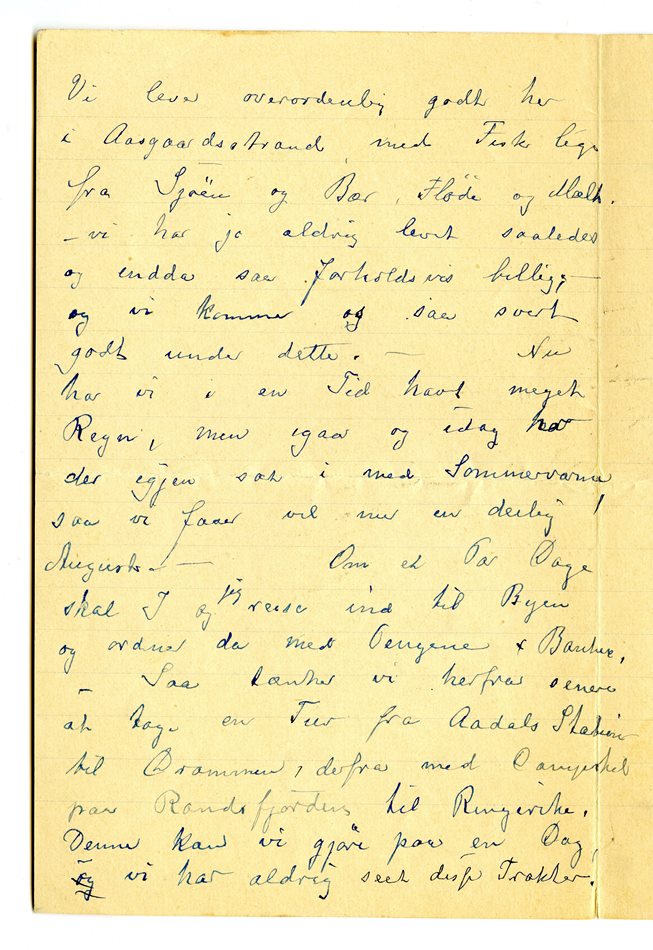 Vi lever overordenlig godt her
i Aasgaardsstrand, med Fisk lige
fra Sjöen og Bær, Fløde og Mælk.
– vi har jo aldrig levet saaledes
og endda saa forholdsvis billig, –
og vi kommer os saa svært
godt under dette. – Nu
har vi i en Tid havt meget
Regn, men igaar og idag har
der igjen sat i med Sommervarme
saa vi faaer vel nu en deilig
August. – Om et Par Dage
skal I og jeg reise ind til Byen
og ordner da med Pengene & Banken,
– Saa tænker vi herfra senere
at tage en Tur fra Aadals Station
til Drammen, derfra med
paa Randsfjorden til Ringerike.
Denne kan vi gjøre paa en Dag,
og vi har aldrig seet disse Trakter.